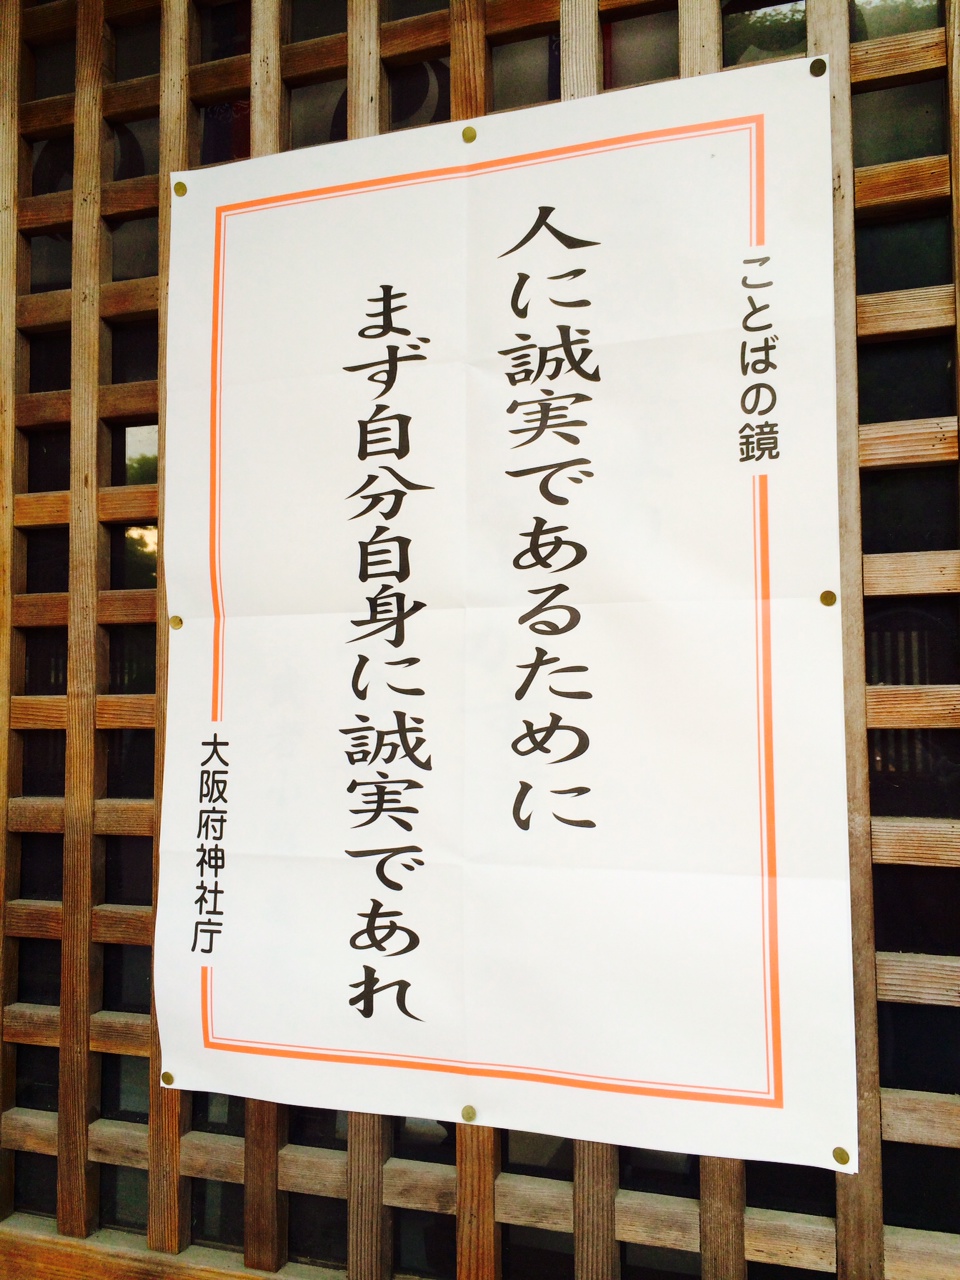 ことばの鏡
人に誠実であるために
まず自分自身に誠実であれ
大阪府神社庁